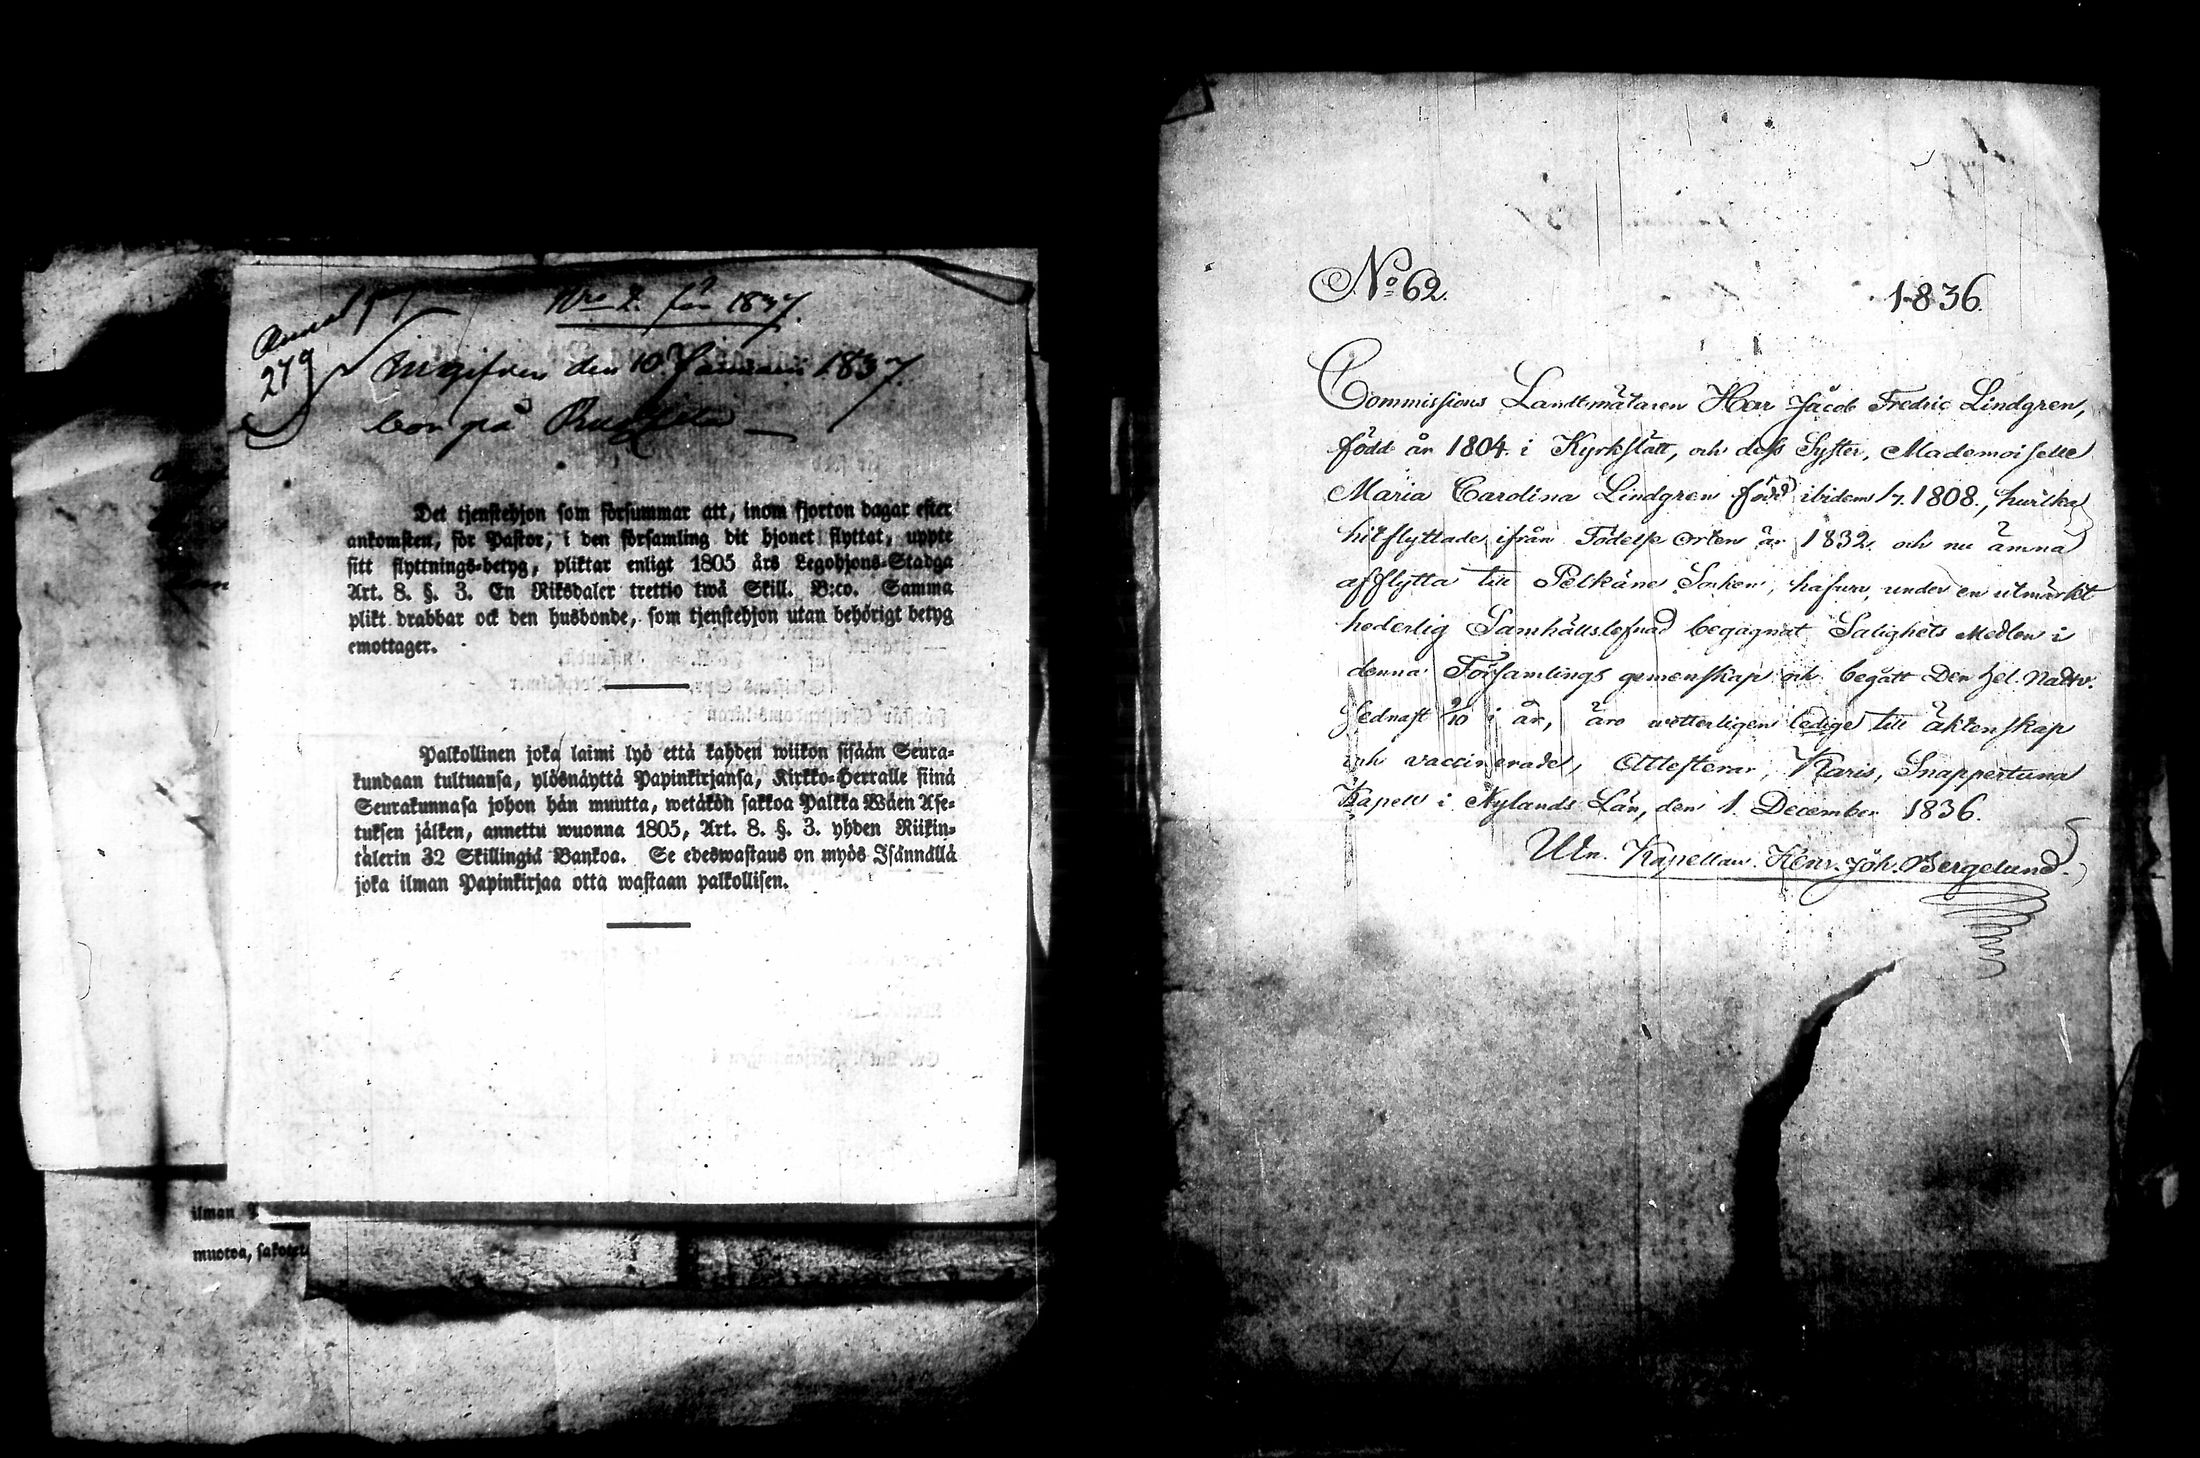 Nro 2. för 1837.
279
Ingifven den 10. Januari 1837.
bor på
Det tjenstehjon som försummar att, inom fjorton dagar efter
ankomsten, för Pastor, i den församling dit hjonet flyttat, uppte
sitt flyttnings-betyg, pliktar enligt 1805 års Legohjons-Stadga
Art. 8. §. 3. En Riksdaler trettio twå Skill. B:co. Samma
plikt drabbar ock den husbonde, som tjenstehjon utan behörigt betyg
emottager.
Palkollinen joka laimi lyö että kahden wiikon sisään Seura-
kundaan tultuansa, ylösnäyttä Papinkirjansa, Kirkko-Herralle siinä
Seurakunnasa johon hän muutta, wetäkön sakkoa Palkka Wäen Ase-
tuksen jälken, annettu wuonna 1805, Art. 8. §. 3. yhden Riikin-
talerin 32 Skillingiä Bankoa. Se edeswastaus on myös Isännällä
joka ilman Papinkirjaa otta wastaan palkollisen.
ilman
muotoa,
No 62.
1836.
Commissions Landtmätaren Herr Jacob Fredric Lindgren,
född år 1804 i Kyrkslätt, och dess Syster, Mademoiselle
Maria Carolina Lindgren född ibidem 1808., hwilka
hitflyttade ifrån Födelse Orten år 1832. och nu ämna
afflytta till Pelkäne Socken, hafwa, under en utmärkt
hederlig Samhällslefnad begagnat Salighets Medlen i
denna Församlings gemenskap och begått Den Hel. Nattv.
sednast 9/10 i år, äro wetterligen ledige till äktenskap
och vaccinerade, Attesterar, Karis, Snappertuna
Kapell i Nylands Län, den 1. December 1836.
Kapellan. Henr. Joh. Bergelund.